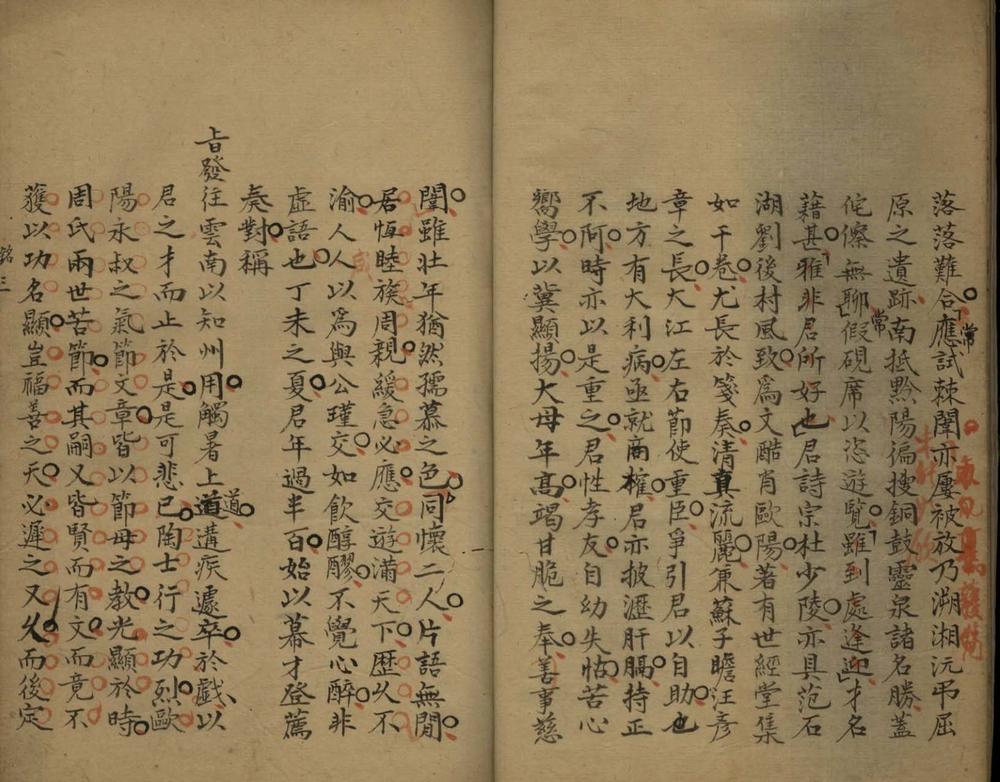 落落難合應試棘闈亦屢被放乃溯湘沅弔屈
常
原之遺跡南抵黔陽徧搜銅鼓靈泉諸名勝蓋
侘傺無聊假硯席以恣遊覽雖到處逢迎才名
常
藉甚雅非君所好也君詩宗杜少陵亦具范石
湖劉後村風致為文酷肖歐陽著有世經堂集
如干卷尤長於箋奏清真流麗兼蘇子瞻汪彥
章之長大江左右節使重臣爭引君以自助也
地方有大利病亟就商榷君亦披瀝肝膈持正
不阿時亦以是重之君性孝友自幼失怙苦心
嚮學以冀顯揚大母年高竭甘脆之奉善事慈
闈雖壯年猶然孺慕之色同懷二人片語無閒
居恆睦族周親緩急必應交遊滿天下歷久不
渝人人以為與公瑾交如飲醇醪不覺心醉非
虛語也丁未之夏君年過半百始以幕才登薦
奏對稱
旨發往雲南以知州用觸暑上道遘疾遽卒於戲以
道
君之才而止於是是可悲已陶士行之功烈歐
陽永叔之氣節文章皆以節母之教光顯於時
周氏兩世苦節而其嗣又皆賢而有文而竟不
獲以功名顯豈福善之天必遲之又久而後定
銘三